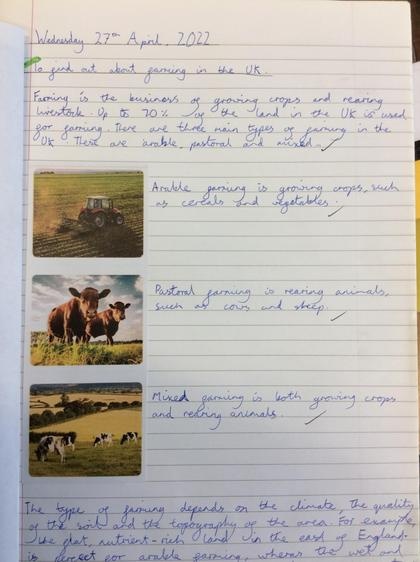 Wednesday 27th April, 2022
To find out about farming in the UK.
Farming is the business of growing crops and rearing
livestock. Up to 70% of the land in the UK is used
for farming. There are three main types of farming in the
UK. There are arable, pastoral and mixed.
Arable farming is growing crops, such
as cereals and vegetables.
Pastoral farming is rearing animals,
such as cows and sheep.
Mixed farming is both growing crops
and rearing animals.
The type of farming depends on the climate, the quality
of the soil and the topography of the area. For example,
the flat, nutrient-rich land in the east of England
is perfect for arable farming, wheras the wet and